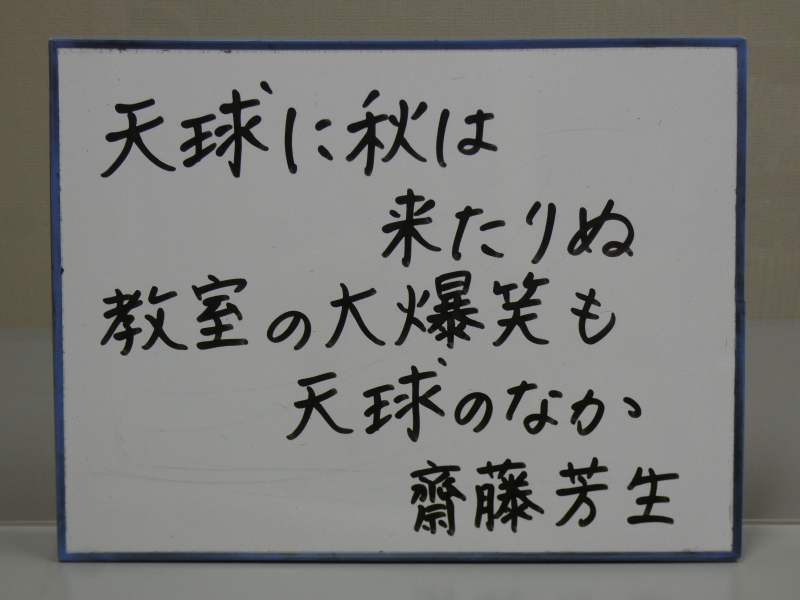 天球に秋は
来たりぬ
教室の大爆笑も
天球のなか
齋藤芳生